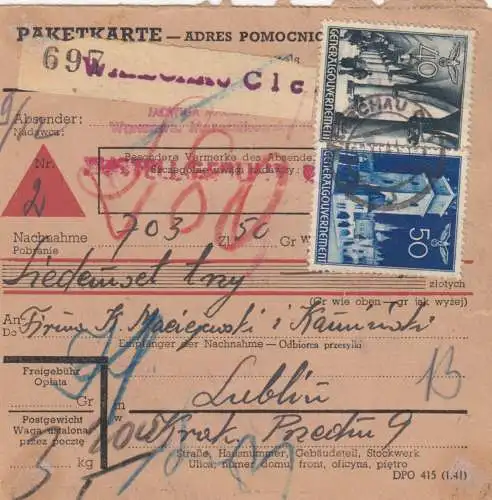 PAKETKARTE — ADRES POMOCNIC
697
WARSCHAU C1
GENERALGOUVERNEMENT
40
GENERALGOUVERNEMENT
50
Absender:
Nadawca:
Nr.
2
Besondere Vermerke des Absende
Szczególne uwagi nadawcy:
Nachnahme 703 Zl 50 Gr
Pobranie
Siedemset trzy złotych
(Gr wie oben — gr jak wyżej)
An Firma K. Maciejewski i Kamiński
Do
Empfänger der Nachnahme — Odbiorca przesyłki
Freigebühr
Opłata
Gr
in Lublin
w
13
Postgewicht
Waga ustalona
przez pocztę
kg
Krak. Przedm 9
Straße, Hausnummer, Gebäudeteil, Stockwerk
Ulica, numer domu, front, oficyna, piętro
DPO 415 (1.41)